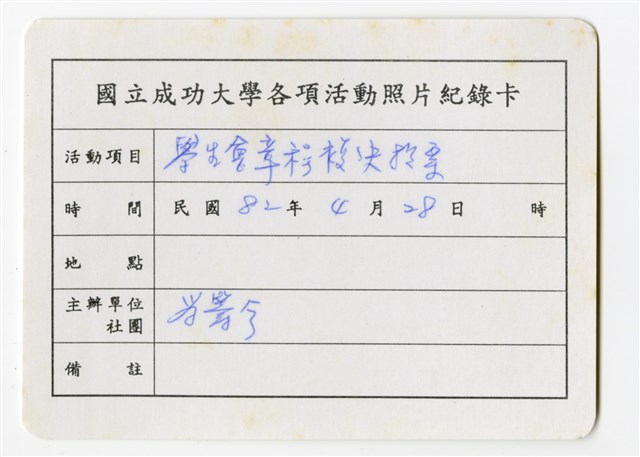 國立成功大學各項活動照片紀錄卡
活動項目 學生會章程複決投票
時間 民國 82 年 4 月 28 日 時
地點
主辦單位
社團
備註